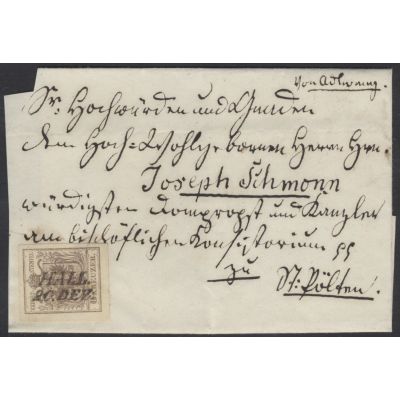 Von Adlwang.
Sr. Hochwürden und Gnaden
dem Hoch=Wohlgebornen Herrn Hrn.
Joseph Schmonn
würdigsten Domprobst und Kanzler
am bischöflichen Konsistorium
zu
St: Pölten.
KREUZER.
HALL.
20. DEZ.